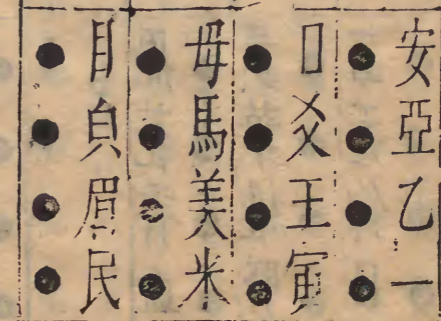 安亞乙一
●●●●
□爻王寅
●●●●
母馬美米
●●●●
目皃眉民
●●●●